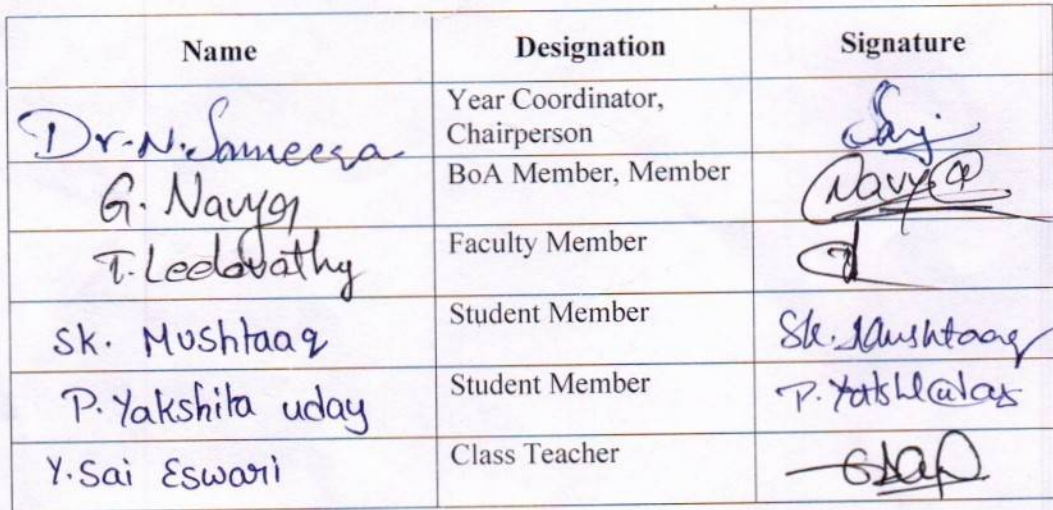 Name Designation Signature
Dr. N. Sameera Year Coordinator, Chairperson
G. Navya BoA Member, Member Navya
T. Leelavathy Faculty Member
SK. Mushtaaq Student Member Sk. Mushtaaq
P. Yakshita uday Student Member
Y. Sai Eswari Class Teacher